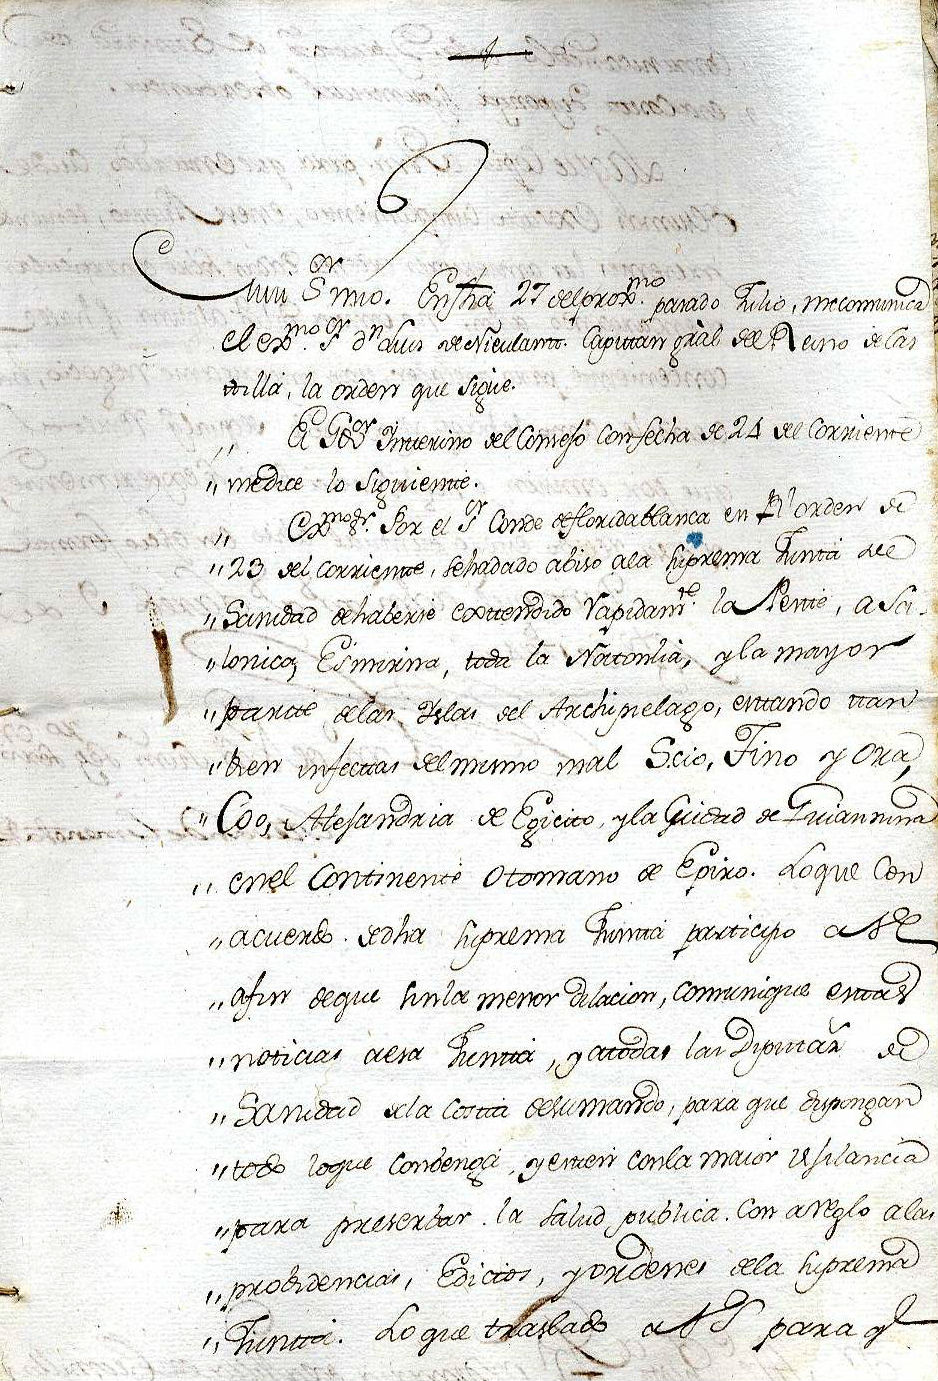 Muy Sʳ mio. En fhã 27 del proxᵐᵒ. pasado Julio, me comunica
el exᵐᵒ Sʳ dⁿ Luis de Nieulant. Capitan grãl del Reino de Cas
tilla, la orden que sigue.
„ El Gōʳ Ynterino del Consejo con fecha de 24 del corriente
„ medice lo siguiente.
„ Exᵐᵒ Sʳ. Por el Sʳ Conde de floridablanca en Rˡ orden de
„ 23 del corriente, sehadado abiso ala suprema Junta de
„ Sanidad dehaberse extendido rapidamᵗᵉ. la Peste, a Sa-
„ lonica, Esmirna, toda la Natonlia, y la mayor
„ parte delas Yslas del Archipielago, estando tan
„ bien infectas del mismo mal Scio, Tino y
„ Coo, Alesandria de Egicito, yla Ciudad de Triannina
„ enel Continente Otomano de Epiro. Loque Con
„ acuerdo dedha suprema Junta participo a VE
„ afin deque sinla menor dilacion, comunique estas
„ noticias aesa Junta, yatodas las Diputaz̃ de
„ Sanidad dela Costa desumando, para que dispongan
„ todo loque conbenga, yesten conla maior vijilancia
„ para preserbar la salud publica. Con arreglo alas
„ probidencias, Edictos, yordenes dela suprema
„ Junta. Loque traslado a VS para q̃